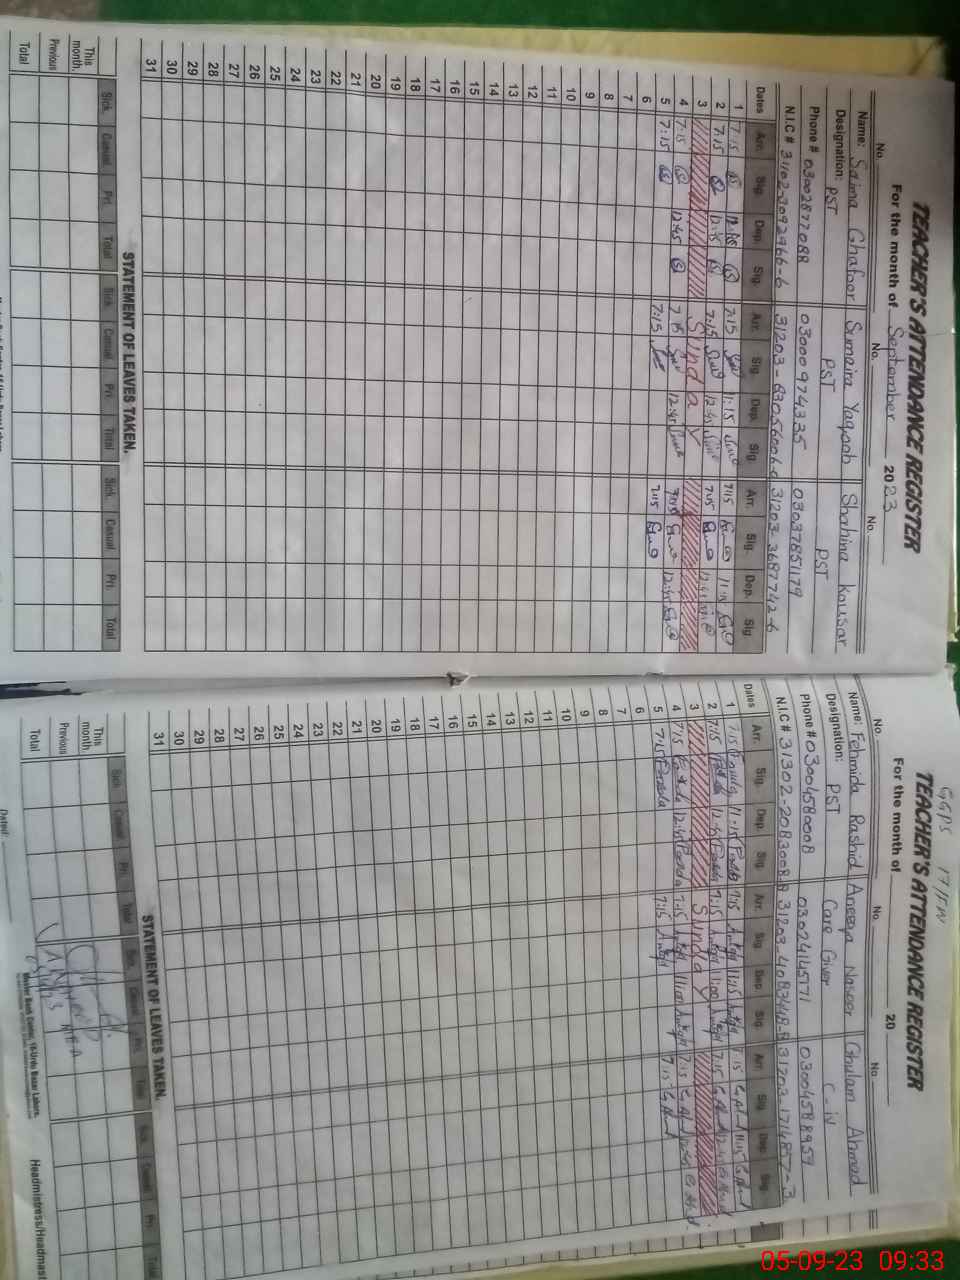 TEACHER'S ATTENDANCE REGISTER
For the month of September 2023
No. No. No.
Name: Saima Ghafoor Sumaira Yaqoob Shahina Kousar
Designation: PST PST PST
Phone # 03002877088 03000974335 03037851179
N.I.C # 31102-3092966-6 31203-6305600-6 31203-3687742-6
Dates Arr. Sig. Dep. Sig. Arr. Sig. Dep. Sig. Arr. Sig. Dep. Sig.
1 7:15 12:45 7:15 11:15 7:15 11:15
2 7:15 12:45 7:15 12:45 7:15 12:45
3 Sunday
4 7:15 12:45 7:15 12:45 7:15 12:45
5 7:15 7:15 7:15
6
7
8
9
10
11
12
13
14
15
16
17
18
19
20
21
22
23
24
25
26
27
28
29
30
31
STATEMENT OF LEAVES TAKEN.
Sick. Casual Pri. Total Sick. Casual Pri. Total Sick. Casual Pri. Total
This month.
Previous
Total
GGPS 17/FW
TEACHER'S ATTENDANCE REGISTER
For the month of 20
No. No. No.
Name: Fehmida Rashid Aneeqa Naseer Ghulam Ahmad
Designation: PST Care Giver C-iv
Phone # 03004580008 03024145771 03004588959
N.I.C # 31302-2083008-8 31203-4083448-8 31203-1714857-3
Dates Arr. Sig. Dep. Sig. Arr. Sig. Dep. Sig. Arr. Sig. Dep. Sig.
1 7:15 11:15 7:15 11:15 7:15 11:15
2 7:15 12:45 7:15 11:00 7:15 12:45
3 Sunday
4 7:15 12:45 7:15 11:00 7:15 12:45
5 7:15 7:15 7:15
6
7
8
9
10
11
12
13
14
15
16
17
18
19
20
21
22
23
24
25
26
27
28
29
30
31
STATEMENT OF LEAVES TAKEN.
Sick Casual Pri. Total Sick. Casual Pri. Total Sick. Casual Pri. Total
This month.
Previous
Total
Master Book Centre, 16-Urdu Bazar Lahore.
Dated: Headmistress/Headmast
05-09-23 09:33